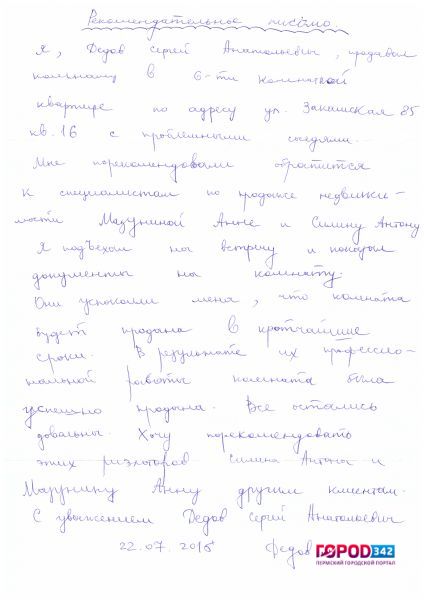 Рекомендательное письмо
Я, Дедов Сергей Анатольевич, продавал
комнату в 6-ти комнатной
квартире по адресу ул. Закамская 85
кв. 16 с проблемными соседями.
Мне порекомендовали обратится
к специалистам по продаже недвижи-
мости Мазуниной Анне и Силину Антону
Я подъехал на встречу и показал
документы на комнату.
Они успокоили меня, что комната
будет продана в кротчайшие
сроки. В результате их професcио-
нальной работы комната была
успешно продана. Все остались
довольны. Хочу порекомендовать
этих риэлторов Силина Антона и
Мазунину Анну другим клиентам.
С уважением Дедов Сергей Анатольевич
22.07.2015 Дедов
ГОРОД 342
ПЕРМСКИЙ ГОРОДСКОЙ ПОРТАЛ